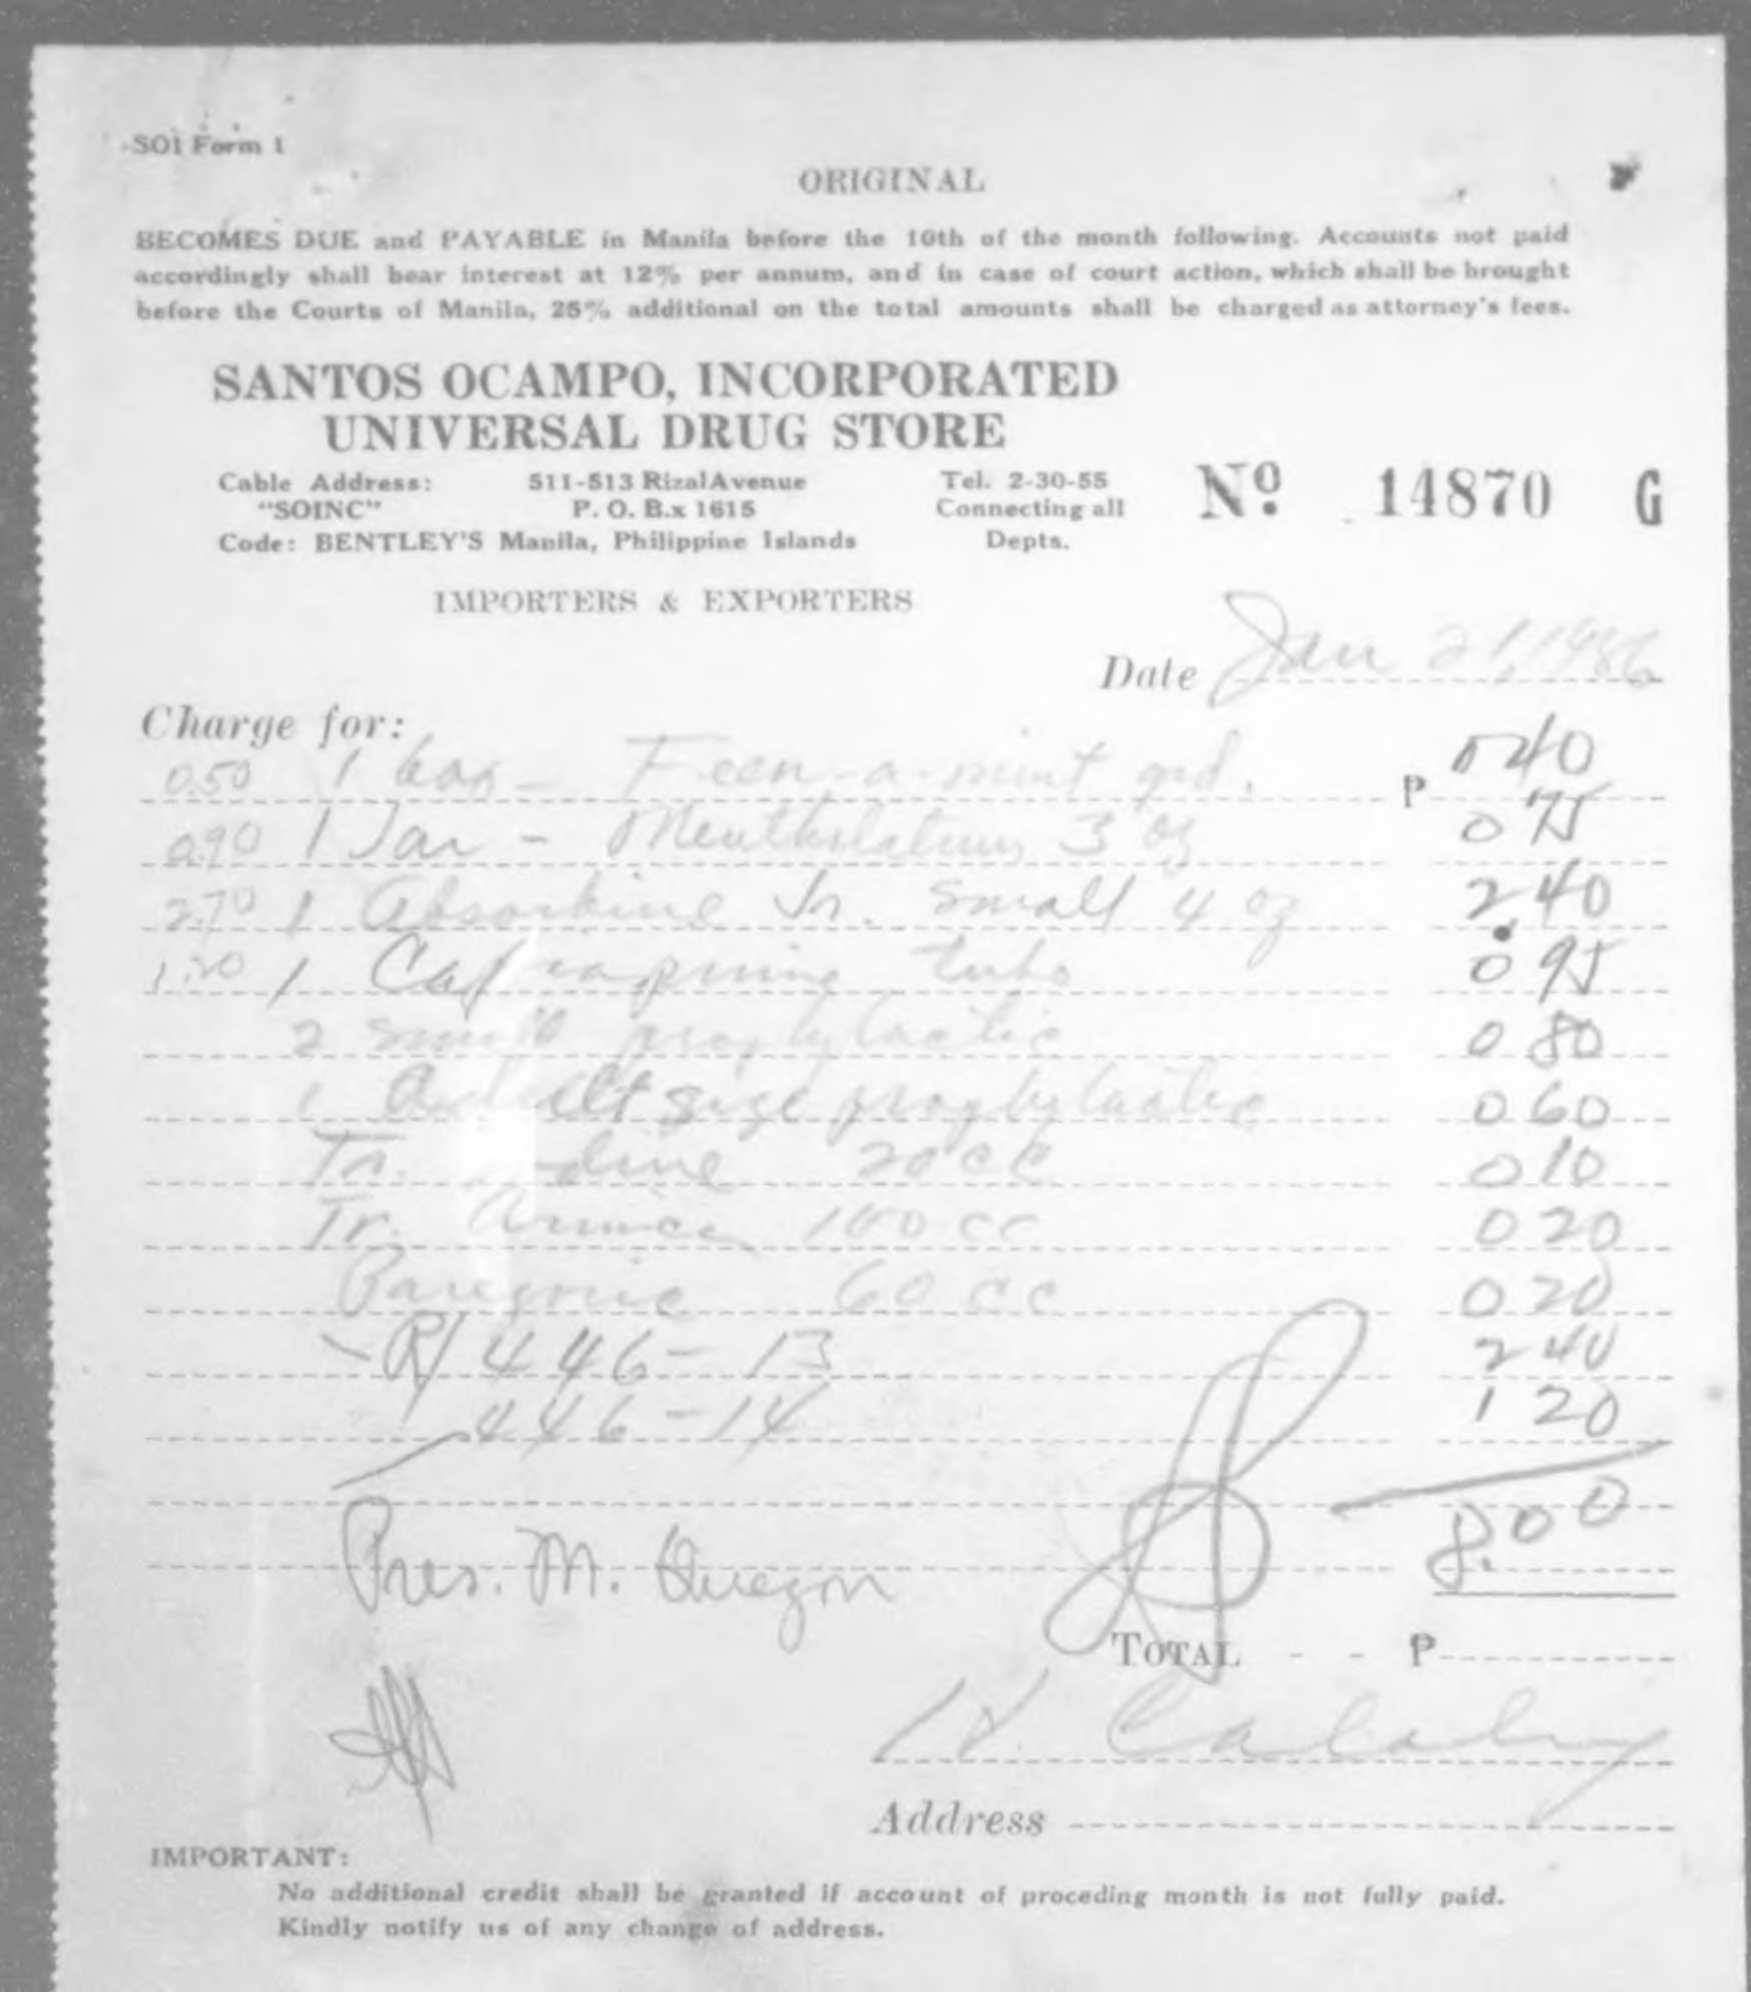 SOI Form 1
ORIGINAL
BECOMES DUE and PAYABLE in Manila before the 10th of the month following. Accounts not paid
accordingly shall bear interest at 12% per annum, and in case of court action, which shall be brought
before the Courts of Manila, 25% additional on the total amounts shall be charged as attorney's fees.
SANTOS OCAMPO, INCORPORATED
UNIVERSAL DRUG STORE
Cable Address: 511-513 Rizal Avenue Tel. 2-30-55 Nº 14870 G
"SOINC" P. O. B.x 1615 Connecting all
Code: BENTLEY'S Manila, Philippine Islands Depts.
IMPORTERS & EXPORTERS
Date Jan 21, 1936
Charge for:
0.50 1 box - Feen-a-mint P 0 40
0.90 1 Jar - Mentholatum 3 oz 0 75
2.70 1 Absorbine Jr. small 4 oz 2.40
1.20 1 tube 0 95
2 small prophylactic 0 80
1 Adult size prophylactic 0 60
Tr. 20 cc 0 10
Tr. Arnica 100 cc 0 20
Paregoric 60 cc 0 20
R/ 446-13 2 40
446-14 1 20
8.00
Pres. M. Quezon
TOTAL - - P
Address
IMPORTANT:
No additional credit shall be granted if account of proceding month is not fully paid.
Kindly notify us of any change of address.